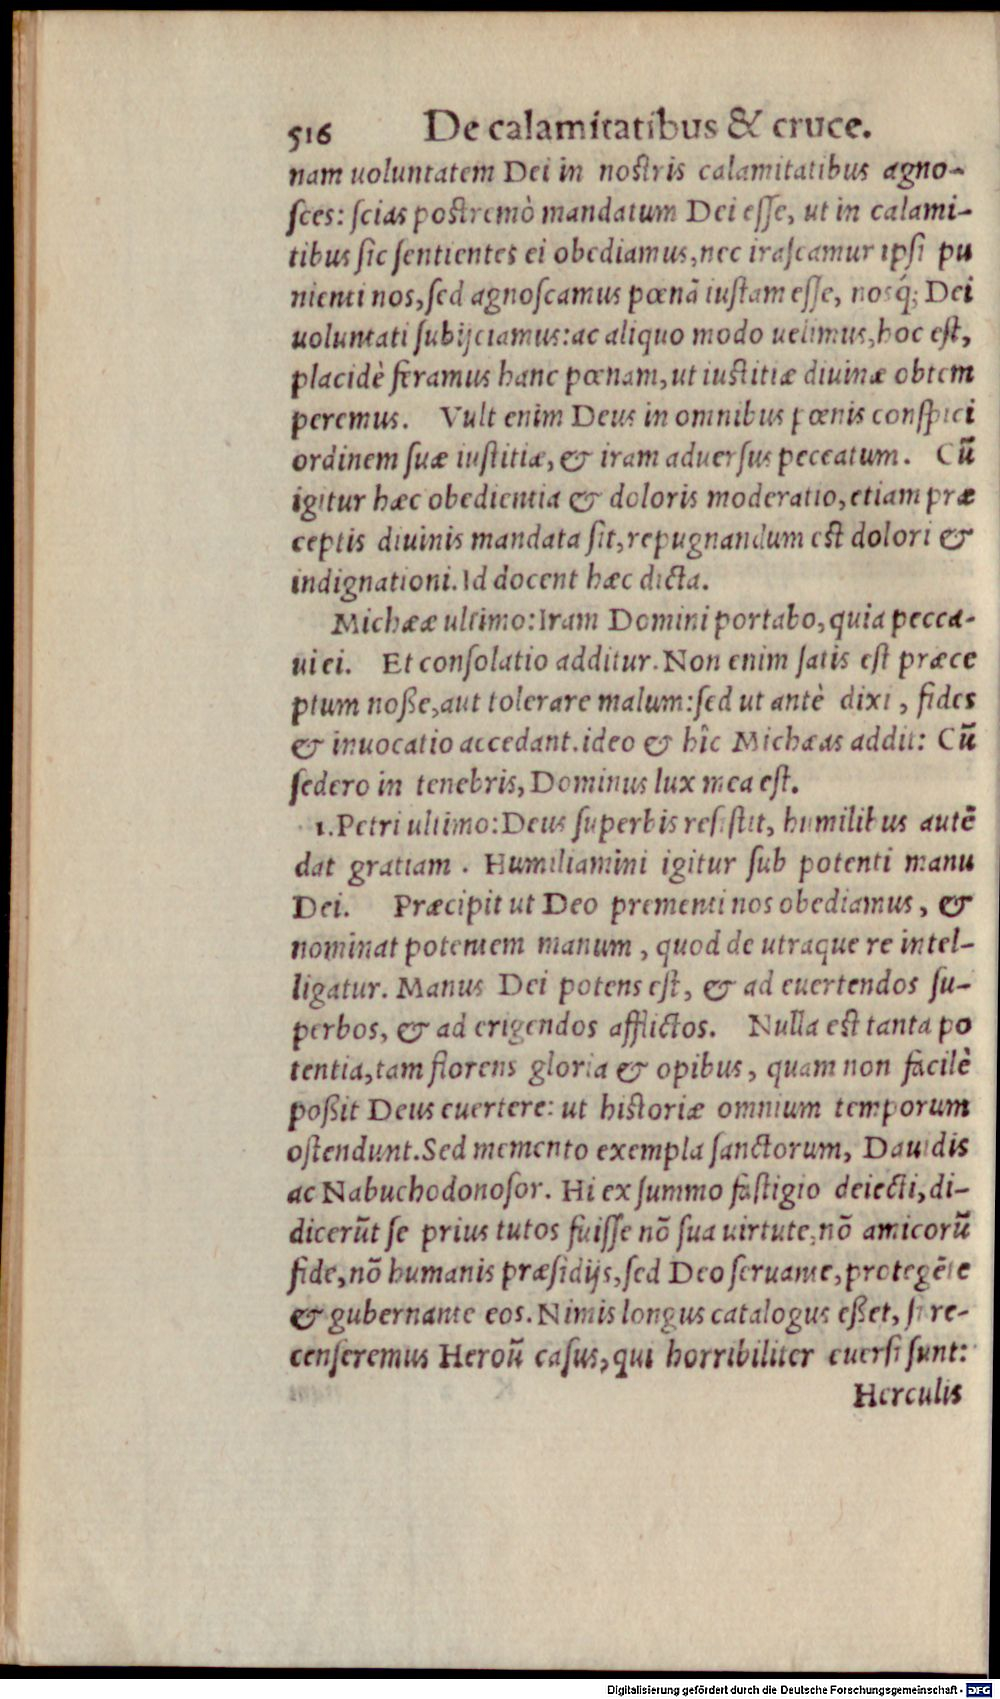 516 De calamitatibus & cruce.
nam uoluntatem Dei in nostris calamitatibus agno-
sces: scias postremò mandatum Dei esse, ut in calami-
tibus sic sentientes ei obediamus, nec irascamur ipsi pu
nienti nos, sed agnoscamus pœnã iustam esse, nosq́; Dei
uoluntati subijciamus: ac aliquo modo uelimus, hoc est,
placidè feramus hanc pœnam, ut iustitiæ diuinæ obtem
peremus. Vult enim Deus in omnibus pœnis conspici
ordinem suæ iustitiæ, & iram aduersus peccatum. Cũ
igitur hæc obedientia & doloris moderatio, etiam præ
ceptis diuinis mandata sit, repugnandum est dolori &
indignationi. Id docent hæc dicta.
Michææ ultimo: Iram Domini portabo, quia pecca-
ui ei. Et consolatio additur. Non enim satis est præce
ptum noße, aut tolerare malum: sed ut antè dixi, fides
& inuocatio accedant. ideo & hîc Michæas addit: Cũ
sedero in tenebris, Dominus lux mea est.
1. Petri ultimo: Deus superbis resistit, humilibus autẽ
dat gratiam. Humiliamini igitur sub potenti manu
Dei. Præcipit ut Deo prementi nos obediamus, &
nominat potentem manum, quod de utraque re intel-
ligatur. Manus Dei potens est, & ad euertendos su-
perbos, & ad erigendos afflictos. Nulla est tanta po
tentia, tam florens gloria & opibus, quam non facilè
poßit Deus euertere: ut historiæ omnium temporum
ostendunt. Sed memento exempla sanctorum, Dauidis
ac Nabuchodonosor. Hi ex summo fastigio deiecti, di-
dicerũt se prius tutos fuisse nõ sua uirtute, nõ amicorũ
fide, nõ humanis præsidijs, sed Deo seruante, protegẽte
& gubernante eos. Nimis longus catalogus eßet, si re-
censeremus Heroũ casus, qui horribiliter euersi sunt:
Herculis
Digitalisierung gefördert durch die Deutsche Forschungsgemeinschaft - DFG